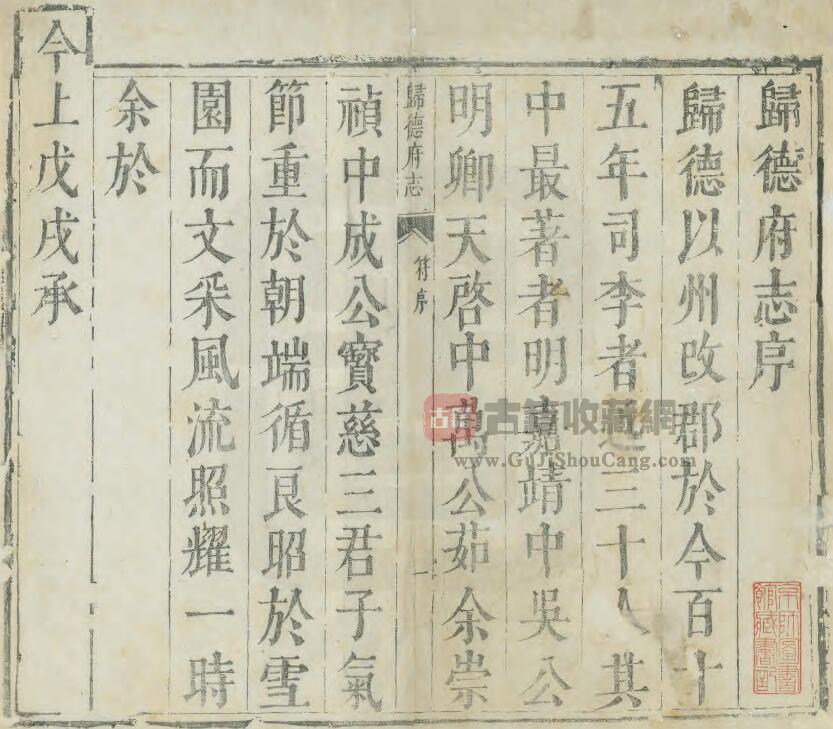 歸德府志序
歸德以州改郡於今百十
五年司李者三十人其
中最著者明嘉靖中吳公
明卿天啓中萬公茹余崇
歸德府志 符序 一
禎中成公寶慈三君子氣
節重於朝端循良昭於雪
園而文采風流照耀一時
余於
今上戊戌承
京師圖書
館藏書記
古籍收藏網
www.GuJiShouCang.com